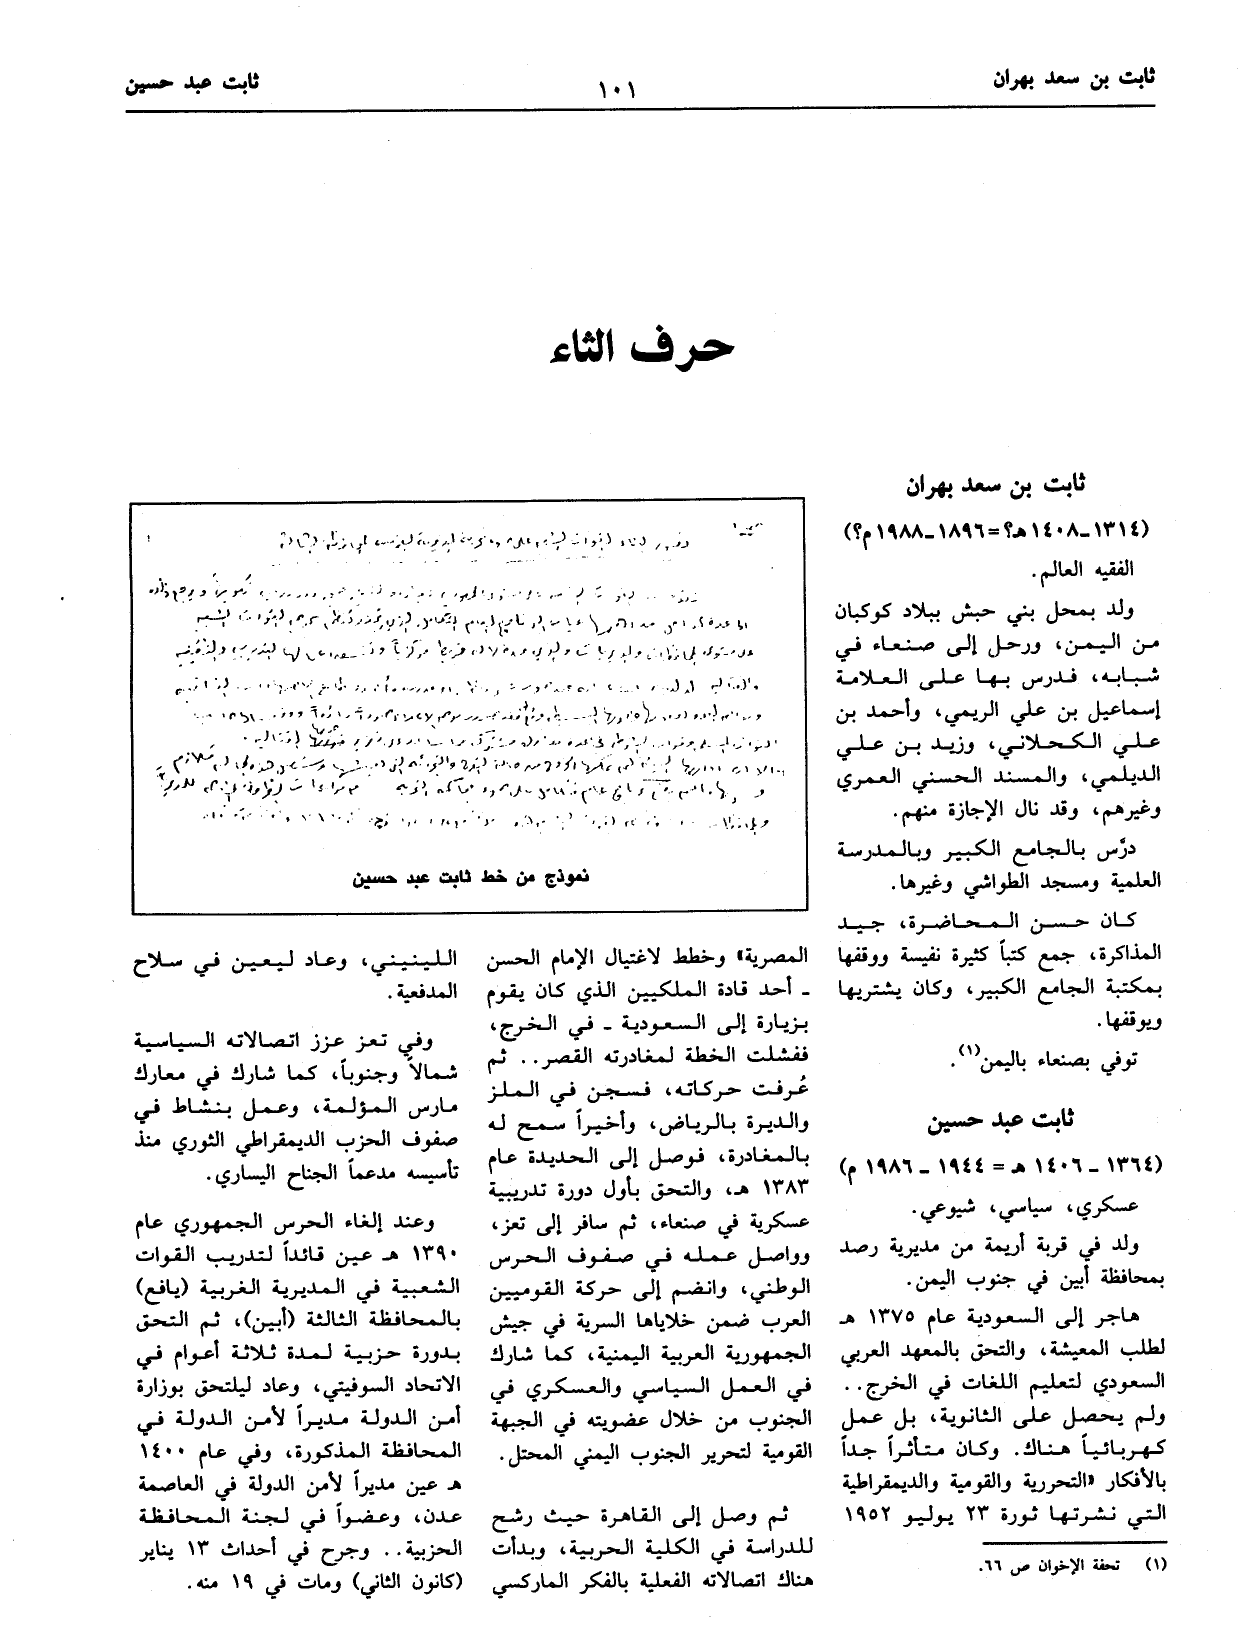 ثابت بن سعد بهران
١٠١
ثابت عبد حسين
حرف الثاء
ثابت بن سعد بهران
(١٣١٤-١٤٠٨هـ؟=١٨٩٦-١٩٨٨م؟)
الفقيه العالم.
ولد بمحل بني حبش ببلاد كوكبان
من اليمن، ورحل إلى صنعاء في
شبابه، فدرس بها على العلامة
إسماعيل بن علي الريمي، وأحمد بن
علي الكحلاني، وزيد بن علي
الديلمي، والمسند الحسني العمري
وغيرهم، وقد نال الإجازة منهم.
درَّس بالجامع الكبير وبالمدرسة
العلمية ومسجد الطواشي وغيرها.
كان حسن المحاضرة، جيد
المذاكرة، جمع كتباً كثيرة نفيسة ووقفها
بمكتبة الجامع الكبير، وكان يشتريها
ويوقفها.
توفي بصنعاء باليمن(١).
ثابت عبد حسين
(١٣٦٤ - ١٤٠٦ هـ = ١٩٤٤ - ١٩٨٦ م)
عسكري، سياسي، شيوعي.
ولد في قرية أريمة من مديرية رصد
بمحافظة أبين في جنوب اليمن.
هاجر إلى السعودية عام ١٣٧٥ هـ
لطلب المعيشة، والتحق بالمعهد العربي
السعودي لتعليم اللغات في الخرج..
ولم يحصل على الثانوية، بل عمل
كهربائياً هناك. وكان متأثراً جداً
بالأفكار «التحررية والقومية والديمقراطية
التي نشرتها ثورة ٢٣ يوليو ١٩٥٢
(١) تحفة الإخوان ص ٦٦.
نموذج من خط ثابت عبد حسين
المصرية» وخطط لاغتيال الإمام الحسن
- أحد قادة الملكيين الذي كان يقوم
بزيارة إلى السعودية - في الخرج،
ففشلت الخطة لمغادرته القصر.. ثم
عُرفت حركاته، فسجن في الملز
والديرة بالرياض، وأخيراً سمح له
بالمغادرة، فوصل إلى الحديدة عام
١٣٨٣ هـ، والتحق بأول دورة تدريبية
عسكرية في صنعاء، ثم سافر إلى تعز،
وواصل عمله في صفوف الحرس
الوطني، وانضم إلى حركة القوميين
العرب ضمن خلاياها السرية في جيش
الجمهورية العربية اليمنية، كما شارك
في العمل السياسي والعسكري في
الجنوب من خلال عضويته في الجبهة
القومية لتحرير الجنوب اليمني المحتل.
ثم وصل إلى القاهرة حيث رشح
للدراسة في الكلية الحربية، وبدأت
هناك اتصالاته الفعلية بالفكر الماركسي
اللينيني، وعاد ليعين في سلاح
المدفعية.
وفي تعز عزز اتصالاته السياسية
شمالاً وجنوباً، كما شارك في معارك
مارس المؤلمة، وعمل بنشاط في
صفوف الحزب الديمقراطي الثوري منذ
تأسيسه مدعماً الجناح اليساري.
وعند إلغاء الحرس الجمهوري عام
١٣٩٠ هـ عين قائداً لتدريب القوات
الشعبية في المديرية الغربية (يافع)
بالمحافظة الثالثة (أبين)، ثم التحق
بدورة حزبية لمدة ثلاثة أعوام في
الاتحاد السوفيتي، وعاد ليلتحق بوزارة
أمن الدولة مديراً لأمن الدولة في
المحافظة المذكورة، وفي عام ١٤٠٠
هـ عين مديراً لأمن الدولة في العاصمة
عدن، وعضواً في لجنة المحافظة
الحزبية.. وجرح في أحداث ١٣ يناير
(كانون الثاني) ومات في ١٩ منه.